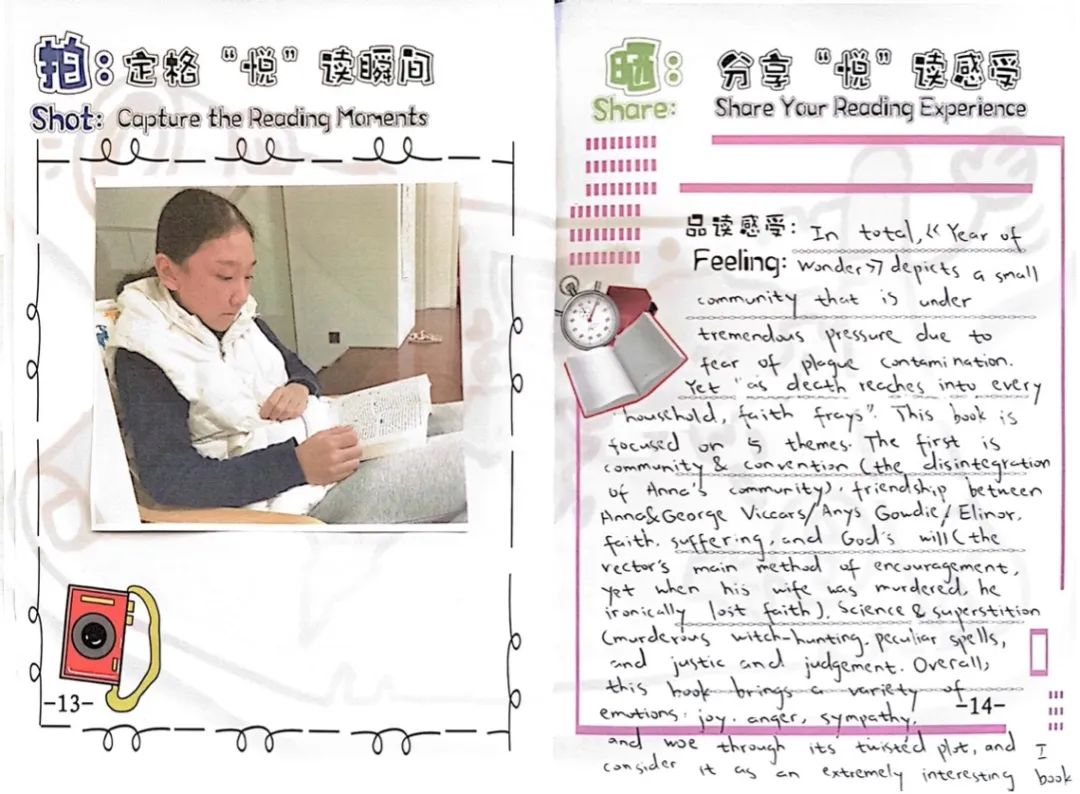 拍：定格“悦”读瞬间
Shot: Capture the Reading Moments
-13-
晒：分享“悦”读感受
Share: Share Your Reading Experience
品读感受：In total,《Year of
Feeling: Wonder》depicts a small
community that is under
tremendous pressure due to
fear of plague contamination.
Yet "as death reaches into every
household, faith frays". This book is
focused on 5 themes. The first is
community & convention (the disintegration
of Anna's community), friendship between
Anna&George Viccars/Anys Gowdie/Elinor.
faith. suffering, and God's will (the
vector's main method of encouragement,
yet when his wife was murdered, he
ironically lost faith). Science & superstition
(murderous witch-hunting. peculiar spells,
and justic and judgement. Overall,
this book brings a variety of
emotions: joy. anger, sympathy,
-14-
and woe through its twisted plot, and I
consider it as an extremely interesting book